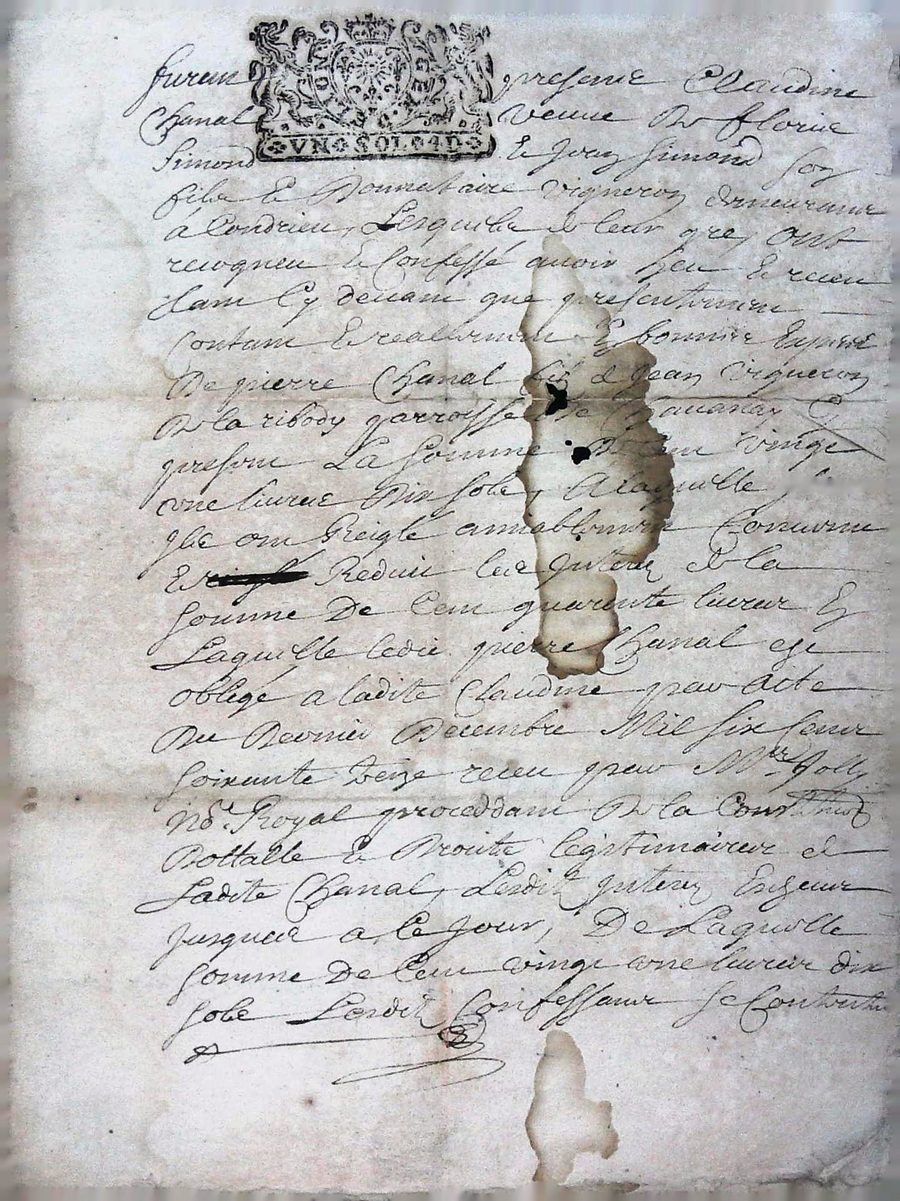 GEN GE
VN SOL 4D
furent presents Claudine
Chanal veuve De florie
Simond Et Jory Simond son
filz Et Donnataire vigneron demeurant
a Condrieu, Lesquels de leur gre, ont
recogneu Et Confessé avoir heu Et receu
tant Cy devant que presentement
contant Et reallement En bonnes Especes
De pierre Chanal filz de Jean vigneron
De la ribody parroisse de Chavanay Cy
present La somme De Cent vingt
une livres Dix solz, A laquelle
ilz ont Reiglé amiablement Convenu
Et Reduit les Interez de la
somme De Cent quarente livres En
Laquelle ledit pierre Chanal est
oblegé a ladite Claudine par acte
Du Dernier Decembre Mil six Cents
soixante treize receu par Mre Jolly
Nore Royal proceddant De la Constitution
Dottalle Et Droits legitimaires de
Ladite Chanal, Lesditz Interez Encourus
Jusques a Ce Jour, De Laquelle
somme De Cent vingt une livres dix
solz Lesditz Confessants se Contentent